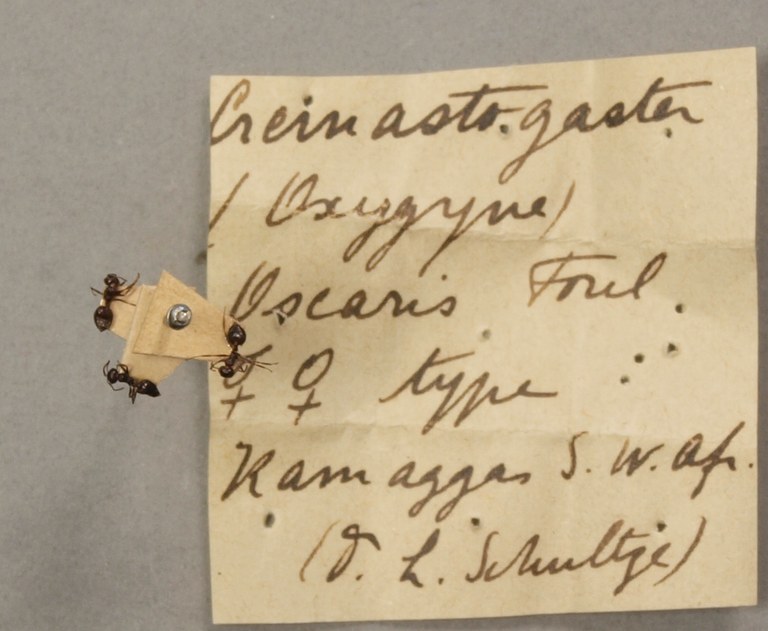 Cremastogaster
(Oxygyne)
Oscaris Forel.
☿ ♀ type
Kamaggas S. W. Af.
(D. L. Schultze)